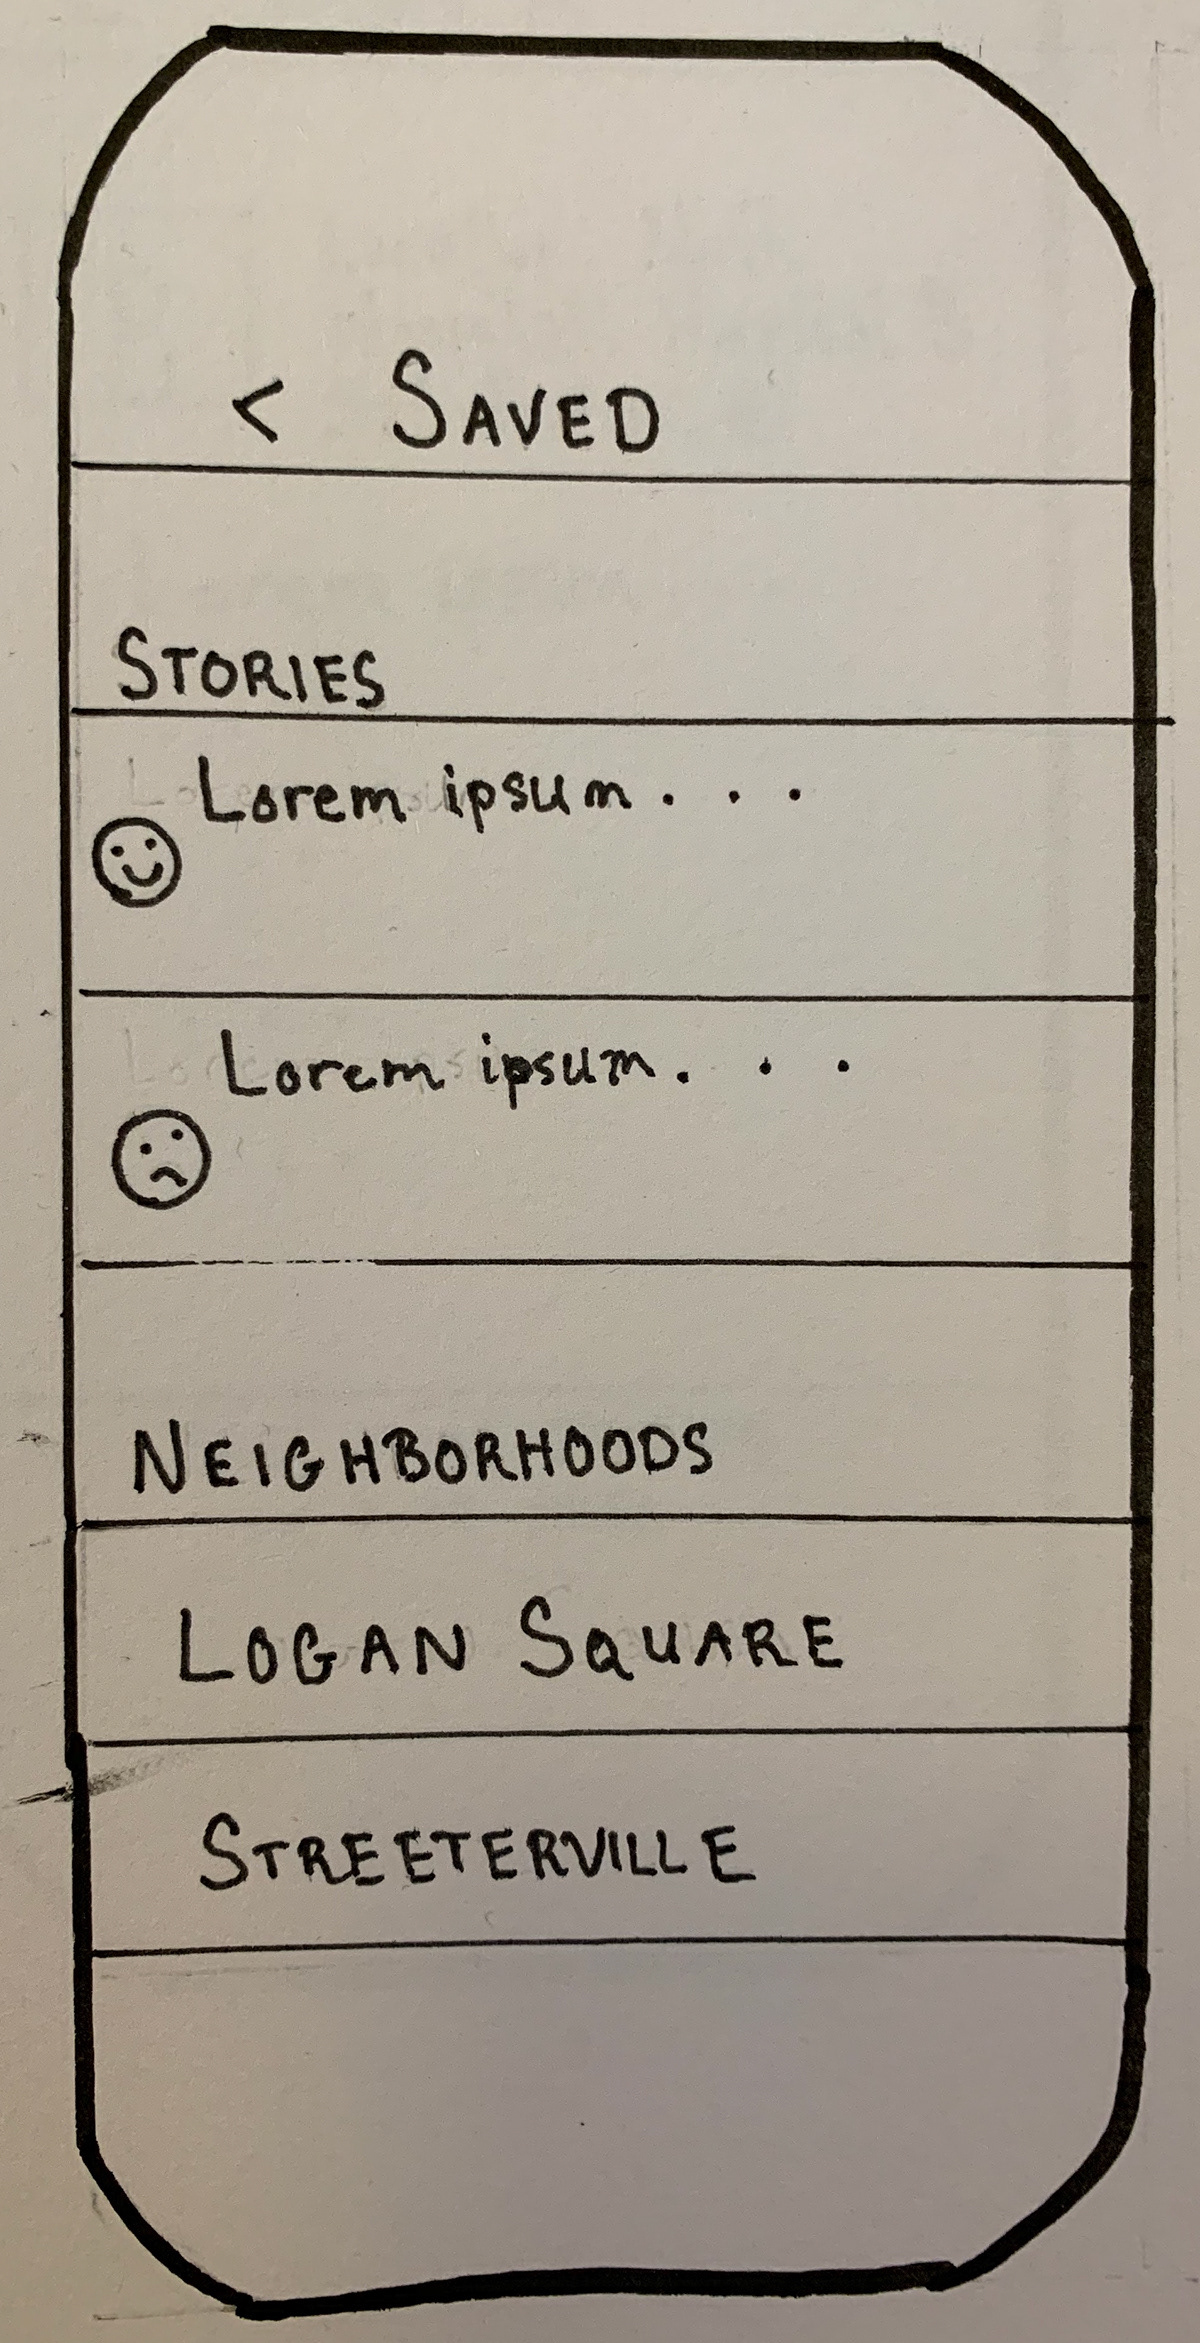 < SAVED
STORIES
Lorem ipsum...
Lorem ipsum...
NEIGHBORHOODS
LOGAN SQUARE
STREETERVILLE